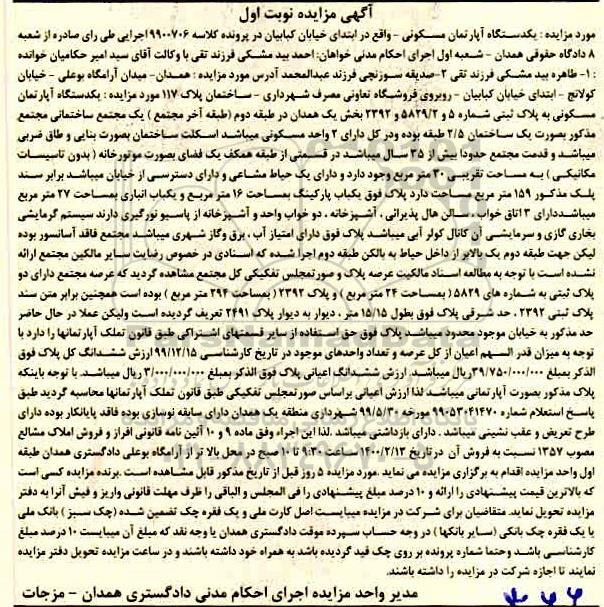 آگهی مزایده نوبت اول
مورد مزایده : یکدستگاه آپارتمان مسکونی - واقع در ابتدای خیابان کبابیان در پرونده کلاسه ۹۹۰۰۷۰۶ اجرایی طی رای صادره از شعبه
۸ دادگاه حقوقی همدان - شعبه اول اجرای احکام مدنی خواهان: احمد بید مشکی فرزند تقی با وکالت آقای سید امیر حکامیان خوانده
: ۱- طاهره بید مشکی فرزند تقی ۲-صدیقه سوزنچی فرزند عبدالمحمد آدرس مورد مزایده : همدان- میدان آرامگاه بوعلی - خیابان
کولانج - ابتدای خیابان کبابیان - روبروی فروشگاه تعاونی مصرف شهرداری - ساختمان پلاک ۱۱۷ مورد مزایده : یکدستگاه آپارتمان
مسکونی به پلاک ثبتی شماره ۵ و ۵۸۲۹/۲ و ۲۳۹۲ بخش یک همدان در طبقه دوم (طبقه آخر مجتمع ) یک مجتمع ساختمانی مجتمع
مذکور بصورت یک ساختمان ۲/۵ طبقه بوده ودر کل دارای ۲ واحد مسکونی میباشد اسکلت ساختمان بصورت بنایی و طاق ضربی
میباشد و قدمت مجتمع حدودا بیش از ۳۵ سال میباشد در قسمتی از طبقه همکف یک فضای بصورت موتورخانه ( بدون تاسیسات
مکانیکی ) به مساحت تقریبی ۳۰ متر مربع وجود دارد و دارای یک حیاط مشاعی و دارای دسترسی از خیابان میباشد برابر سند
پلک مذکور ۱۵۹ متر مربع مساحت دارد پلاک فوق یکباب پارکینگ بمساحت ۱۶ متر مربع و یکباب انباری بمساحت ۲۷ متر مربع
میباشددارای ۳ اتاق خواب ، سالن هال پذیرائی ، آشپزخانه ، دو خواب واحد و آشپزخانه از پاسیو نورگیری دارند سیستم گرمایشی
بخاری گازی و سرمایشی آن کانال کولر آبی میباشد پلاک فوق دارای امتیاز آب ، برق وگاز شهری میباشد مجتمع فاقد آسانسور بوده
لیکن جهت طبقه دوم یک بالابر از داخل حیاط به بالکن طبقه دوم اجرا شده که اسنادی در خصوص رضایت سایر مالکین مجتمع ارائه
نشده است با توجه به مطالعه اسناد مالکیت عرصه پلاک و صورتمجلس تفکیکی کل مجتمع مشاهده گردید که عرصه مجتمع دارای دو
پلاک ثبتی به شماره های ۵۸۲۹ ( بمساحت ۲۴ متر مربع) و پلاک ۲۳۹۲ ( بمساحت ۲۹۴ متر مربع ) بوده است همچنین برابر متن سند
پلاک ثبتی ۲۳۹۲ ، حد شرقی پلاک فوق بطول ۱۵/۱۵ متر ، دیوار به دیوار پلاک ۲۴۹۱ تعریف گردیده است ولیکن عملا در حال حاضر
حد مذکور به خیابان موجود محدود میباشد پلاک فوق حق استفاده از سایر قسمتهای اشتراکی طبق قانون تملک آپارتمانها را دارد با
توجه به میزان قدر السهم اعیان از کل عرصه و تعداد واحدهای موجود در تاریخ کارشناسی ۹۹/۱۲/۱۵ ارزش ششدانگ کل پلاک فوق
الذکر بمبلغ ۳۹/۷۵۰/۰۰۰/۰۰۰ریال میباشد. ارزش ششدانگ اعیانی پلاک فوق الذکر بمبلغ ۳/۰۰۰/۰۰۰/۰۰۰ ریال میباشد. با توجه باینکه
پلاک مذکور بصورت آپارتمانی میباشد لذا ارزش اعیانی براساس صورتمجلس تفکیکی طبق قانون تملک آپارتمانها محاسبه گردید طبق
پاسخ استعلام شماره ۹۹۰۵۳۰۴۱۴۷۰ مورخه ۹۹/۵/۳۰ شهرداری منطقه یک همدان دارای سابقه نوسازی بوده فاقد پایانکار بوده دارای
طرح تعریض و عقب نشینی میباشد . دارای بازداشتی میباشد .لذا این اجراء وفق ماده ۹ و ۱۰ آئین نامه قانونی افراز و فروش املاک مشالع
مصوب ۱۳۵۷ نسبت به فروش آن در تاریخ ۱۴۰۰/۲/۱۳ ساعت ۹:۳۰ تا ۱۰ صبح در محل بالا تر از آرامگاه بوعلی دادگستری همدان طبقه
اول واحد مزایده اقدام به برگزاری مزایده می نماید .مورد مزایده ۵ روز قبل از تاریخ مذکور قابل مشاهده است .برنده مزایده کسی است
که بالاترین قیمت پیشنهادی را ارائه و ۱۰ درصد مبلغ پیشنهادی را فی المجلس و الباقی را ظرف مهلت قانونی واریز و فیش آنرا به دفتر
مزایده تحویل نماید. متقاضیان برای شرکت در مزایده میبایست اصل کارت ملی و یک فقره چک تضمین شده (چک سبز ) بانک ملی
یا یک فقره چک بانکی (سایر بانکها ) در وجه حساب سپرده موقت دادگستری همدان یا وجه نقد که مبلغ آن میبایست ۱۰ درصد مبلغ
کارشناسی باشد وحتما شماره پرونده بر روی چک قید گردیده باشد به همراه خود داشته باشند و در ساعت مزایده تحویل دفتر مزایده
نمایند تا اجازه شرکت در مزایده را داشته باشند.
مدیر واحد مزایده اجرای احکام مدنی دادگستری همدان - مزجات